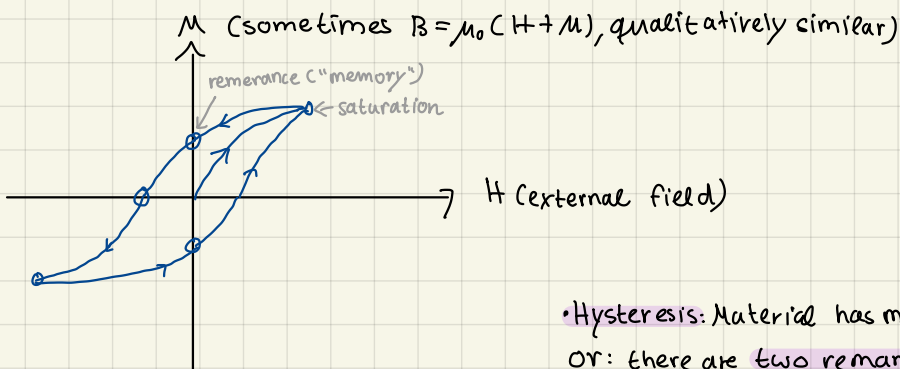 M (sometimes B = μ₀(H+M), qualitatively similar)
remerance ("memory")
saturation
H (external field)
• Hysteresis: Material has m
or: there are two remar